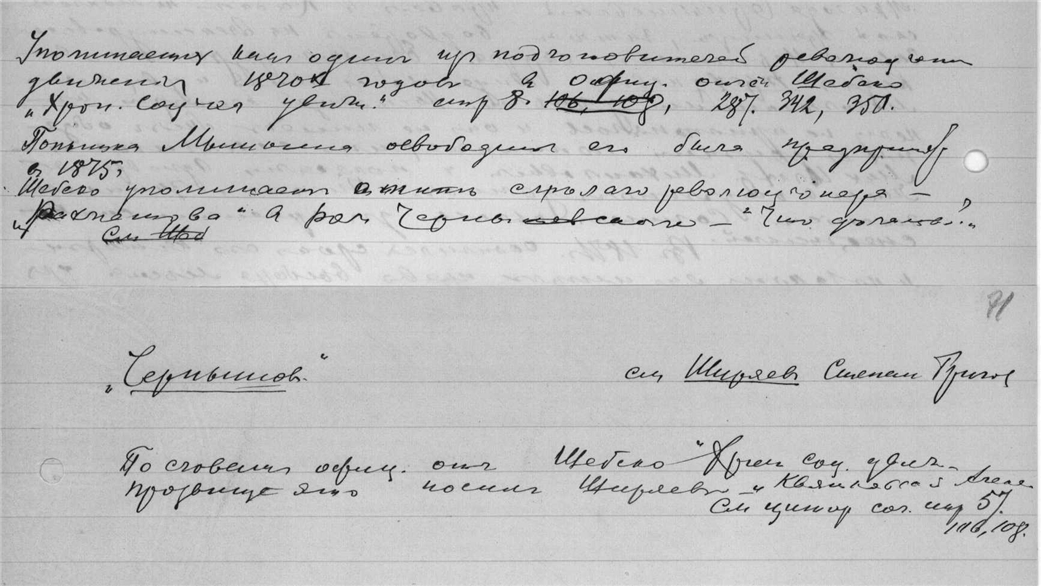 Упоминается как один из подготовителей революцион
движения 1870х годов в офиц. описи Шебеко
„Хрон. соц-ал движ." стр 8. 106, 108, 287. 342, 350.
Попытка Мышкина освободить его была предпринят
в 1875.
Шебеко упоминает опять слова революционера –
„Рахметова" в ром Чернышевского – „Что делать?"
см Шеб
91
„Чернышов"
см Ширяев Степан Григор
По словам офиц. опи Шебеко "Хрон соц. движ.
прозвище это носил Ширяев
См цитир соч. стр 57.
106, 108.